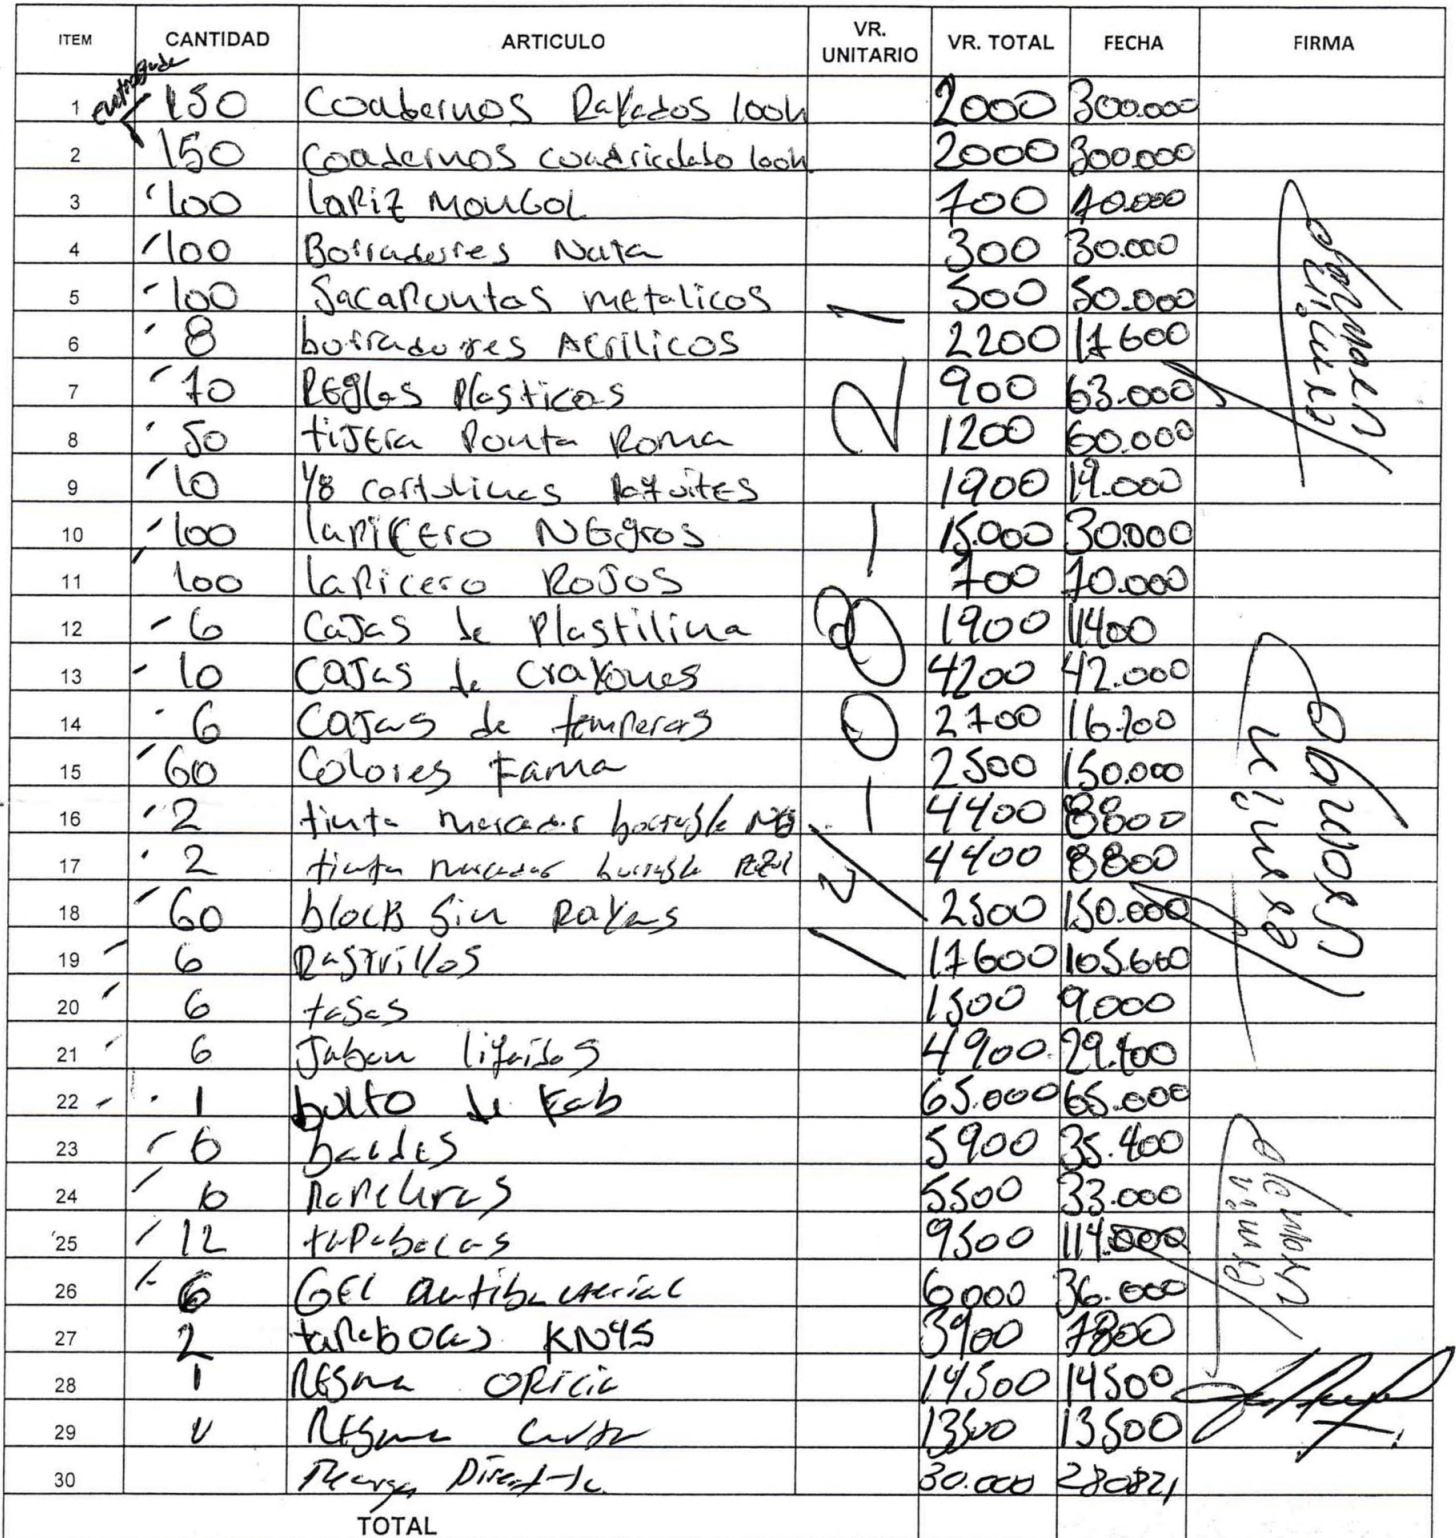 ITEM CANTIDAD ARTICULO VR. UNITARIO VR. TOTAL FECHA FIRMA
entregado
1 150 Coadernos Rayados 100h 2000 300.000
2 150 Coadernos cuadriculado 100h 2000 300.000
3 100 lapiz Mongol 700 70.000
4 100 Borradores Nata 300 30.000
5 100 Sacapontas metalicos 500 50.000
6 8 borradores Acrilicos 2200 17600
7 70 Reglas Plasticas 900 63.000
8 50 tijera Ponta Roma 1200 60.000
9 10 1/8 cartulinas 1900 19.000
10 100 lapicero NEgros 15.000 30.000
11 100 lapicero Rojos 700 70.000
12 6 Cajas de Plastilina 1900 11400
13 10 Cajas de Crayones 4200 42.000
14 6 Cajas de temperas 2700 16.200
15 60 Colores Fama 2500 150.000
16 2 tinta marcador borrable NG 4400 8800
17 2 tinta marcador borrable Azul 4400 8800
18 60 block Sin Rayas 2500 150.000
19 6 Rastrillos 17600 105.600
20 6 tasas 1500 9.000
21 6 Jabon liquidos 4900 29.400
22 1 bulto de Fab 65.000 65.000
23 6 baldes 5900 35.400
24 6 Papeleras 5500 33.000
25 12 tapabocas 9500 114.000
26 6 GEL antibacterial 6000 36.000
27 2 tapabocas KN95 3900 7800
28 1 Resma Oficio 14500 14500
29 Resma Carta 13500 13500
30 Recarga 30.000 280821
TOTAL